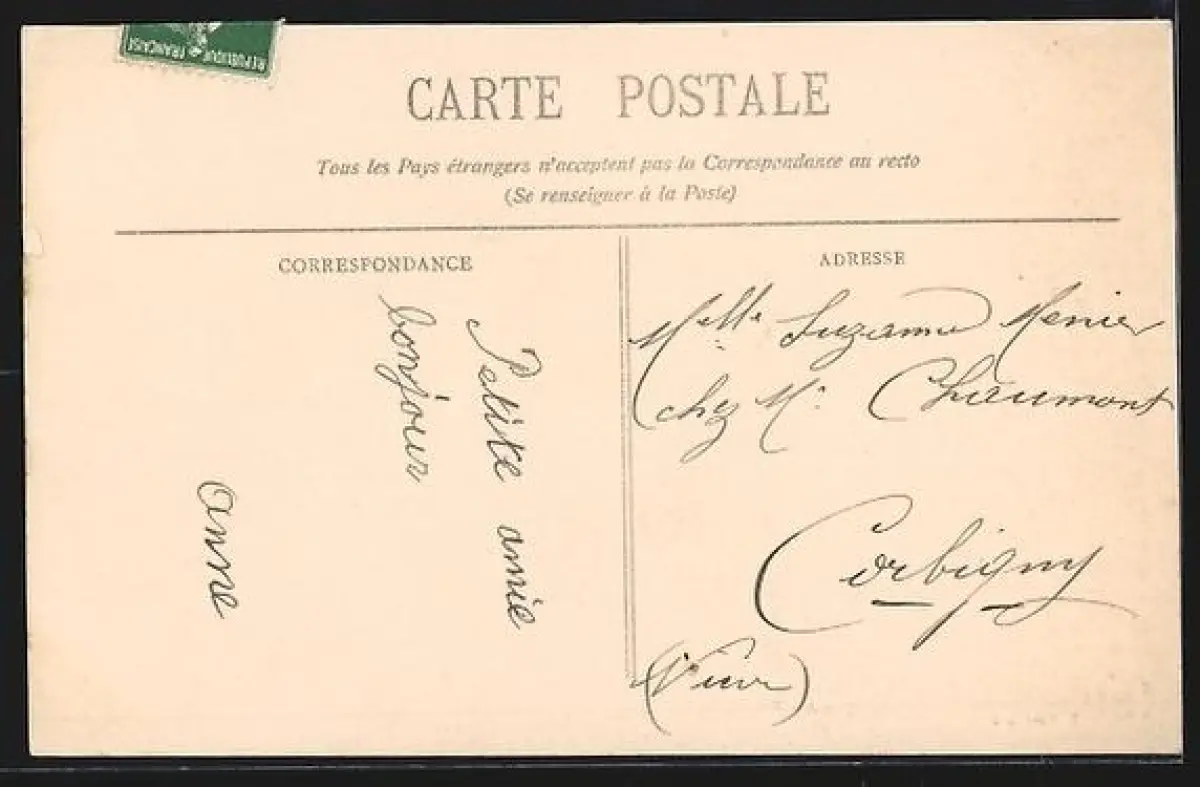 REPUBLIQUE FRANÇAISE
CARTE POSTALE
Tous les Pays étrangers n'acceptent pas la Correspondance au recto
(Se renseigner à la Poste)
CORRESPONDANCE
Petite amie
bonjour
Anne
ADRESSE
Melle Suzanne Menier
chez Mr Chaumont
Corbigny
(Nièvre)